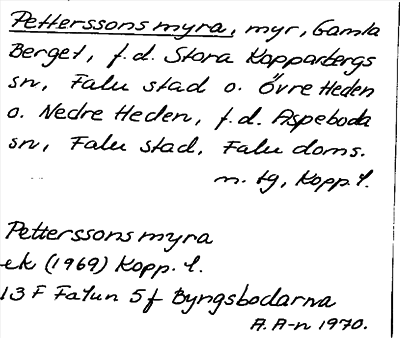 Petterssons myra, myr, Gamla
Berget, f.d. Stora Kopparbergs
sn, Falu stad o. Övre Heden
o. Nedre Heden, f.d. Aspeboda
sn, Falu stad, Falu doms.
m. tg, Kopp. l.
Petterssons myra
ek (1969) Kopp. l.
13 F Falun 5 f Byngsbodarna
A. A-n 1970.